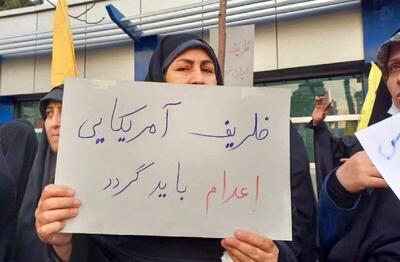 ظریف
ظریف آمریکایی
اعدام باید گردد